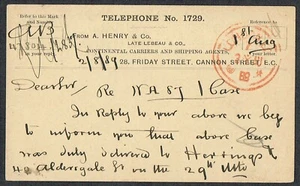 TELEPHONE No. 1729.
Refer to this Mark
and No.
FROM A. HENRY & Co.
LATE LEBEAU & CO.,
CONTINENTAL CARRIERS AND SHIPPING AGENTS,
28, FRIDAY STREET, CANNON STREET, E.C.
in your reply
2/8/89
Your Letter
Dear Sir Re 1 Case
In Reply to your above we beg
to inform you that above Case
was duly delivered to
Aldersgate St on the 29th Ulto